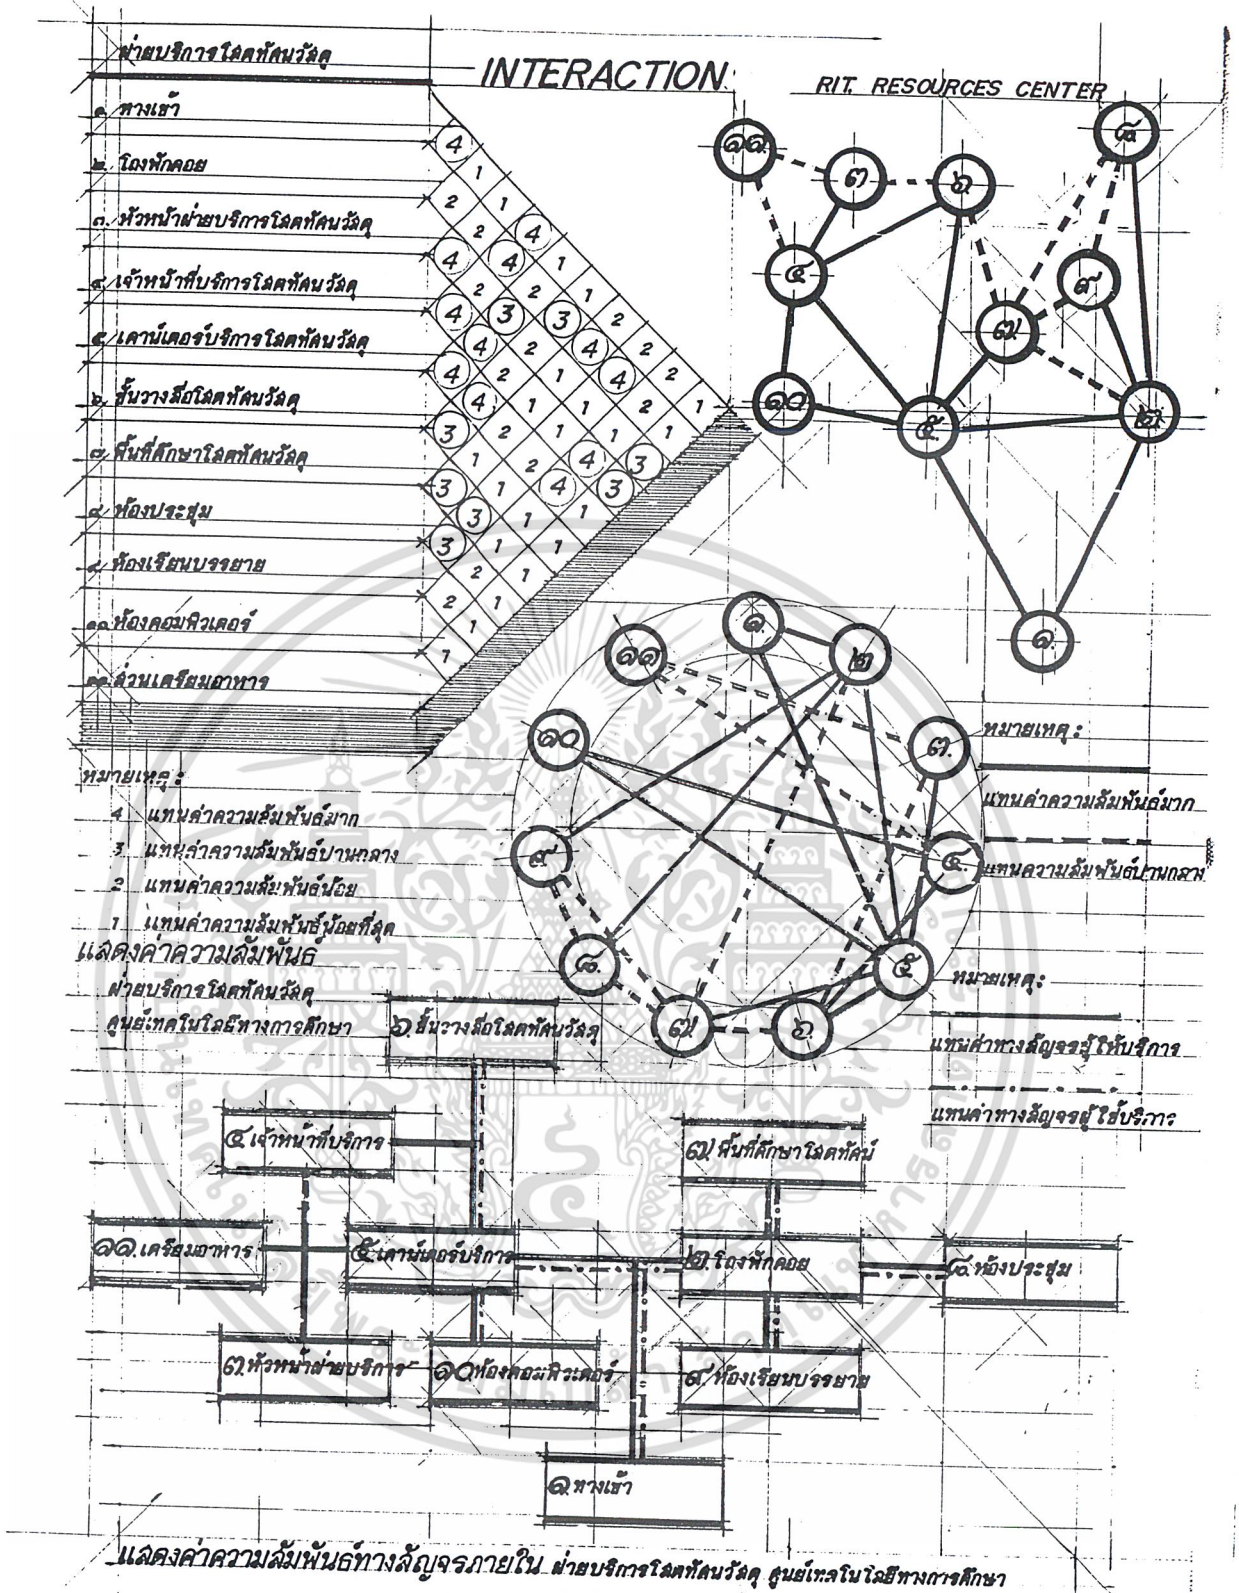 ฝ่ายบริการโสตทัศนวัสดุ
INTERACTION
RIT. RESOURCES CENTER
๑. ทางเข้า
๒. โถงพักคอย
๓. หัวหน้าฝ่ายบริการโสตทัศนวัสดุ
๔. เจ้าหน้าที่บริการโสตทัศนวัสดุ
๕. เคาน์เตอร์บริการโสตทัศนวัสดุ
๖. ชั้นวางสื่อโสตทัศนวัสดุ
๗. พื้นที่ศึกษาโสตทัศนวัสดุ
๘. ห้องประชุม
๙. ห้องเรียนบรรยาย
๑๐. ห้องคอมพิวเตอร์
๑๑. ส่วนเตรียมอาหาร
4
1
2 1
2 4
4 4 1
2 2 1
4 3 3 2
4 2 4 2
4 2 1 4 1
4 1 1 2
3 2 1 1 1
1 2 4 3
3 1 4 3
3 1 1
3 1 1
2 1
2 1
1
1
๑๑.
๓
๖.
๘.
๔
๙
๗.
๑๐
๕.
๒.
๑.
๑.
๑๑
๒
๑๐
๓.
๙.
๔.
๘.
๕
๗.
๖.
หมายเหตุ :
แทนค่าความสัมพันธ์มาก
แทนความสัมพันธ์ปานกลาง
หมายเหตุ :
4 แทนค่าความสัมพันธ์มาก
3 แทนค่าความสัมพันธ์ปานกลาง
2 แทนค่าความสัมพันธ์น้อย
1 แทนค่าความสัมพันธ์น้อยที่สุด
แสดงค่าความสัมพันธ์
ฝ่ายบริการโสตทัศนวัสดุ
ศูนย์เทคโนโลยีทางการศึกษา
หมายเหตุ:
แทนค่าทางสัญจรผู้ให้บริการ
แทนค่าทางสัญจรผู้ใช้บริการ
๖. ชั้นวางสื่อโสตทัศนวัสดุ
๔ เจ้าหน้าที่บริการ
๗. พื้นที่ศึกษาโสตทัศน์
๑๑. เตรียมอาหาร
๕. เคาน์เตอร์บริการ
๒. โถงพักคอย
๘. ห้องประชุม
๓. หัวหน้าฝ่ายบริการ
๑๐ ห้องคอมพิวเตอร์
๙. ห้องเรียนบรรยาย
๑. ทางเข้า
แสดงค่าความสัมพันธ์ทางสัญจรภายใน ฝ่ายบริการโสตทัศนวัสดุ ศูนย์เทคโนโลยีทางการศึกษา